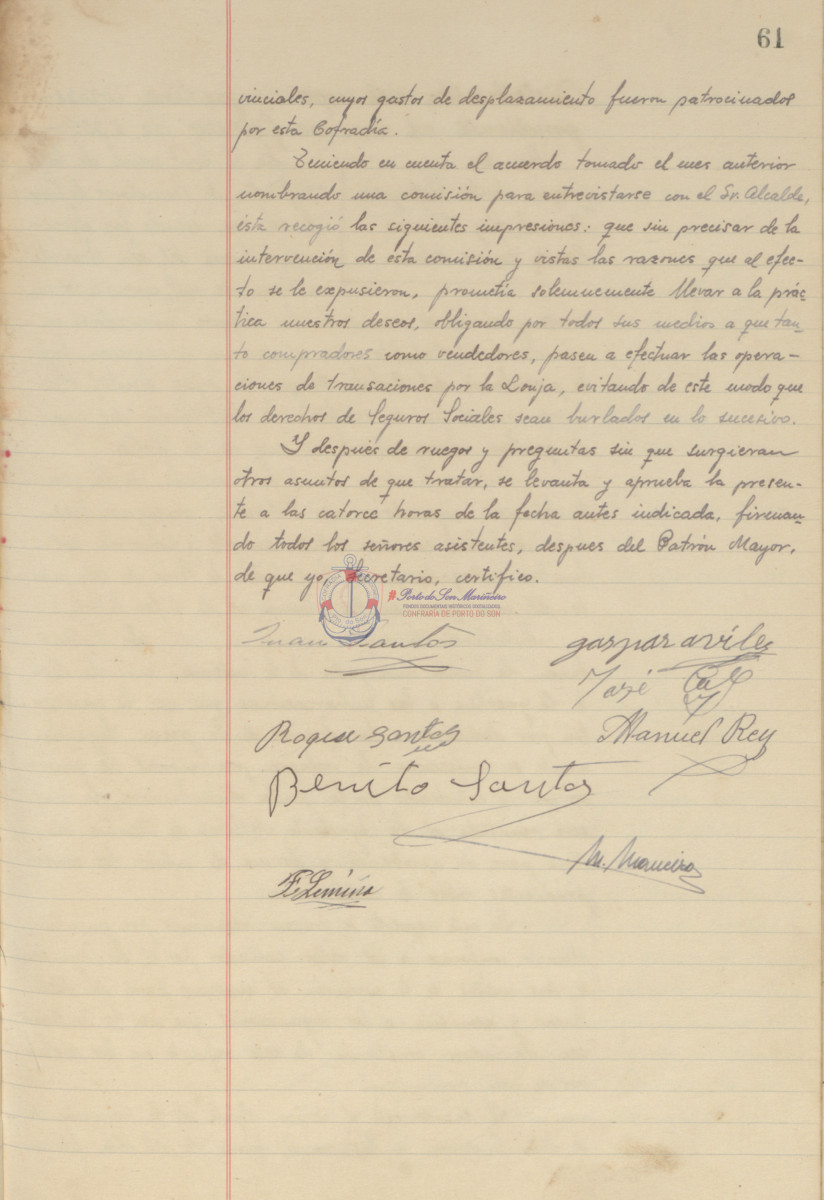 61
vinciales, cuyos gastos de desplazamiento fueron patrocinados
por esta Cofradía.
Teniendo en cuenta el acuerdo tomado el mes anterior
nombrando una comisión para entrevistarse con el Sr. Alcalde,
ésta recogió las siguientes impresiones: que sin precisar de la
intervención de esta comisión y vistas las razones que al efec-
to se le expusieron, prometía solemnemente llevar a la prác-
tica nuestros deseos, obligando por todos sus medios a que tan-
to compradores como vendedores, pasen a efectuar las opera-
ciones de transaciones por la Lonja, evitando de este modo que
los derechos de Seguros Sociales sean burlados en lo sucesivo.
Y después de ruegos y preguntas sin que surgieran
otros asuntos de que tratar, se levanta y aprueba la presen-
te a las catorce horas de la fecha antes indicada, firman-
do todos los señores asistentes, despues del Patrón Mayor,
de que yo, Secretario, certifico.
Porto do Son Mariñeiro
FONDOS DOCUMENTAIS HISTÓRICOS DIXITALIZADOS
CONFRARÍA DE PORTO DO SON
Juan Santos
gaspar aviles
José
Roque Santos
Manuel Rey
Benito Santos
M. Maneiro